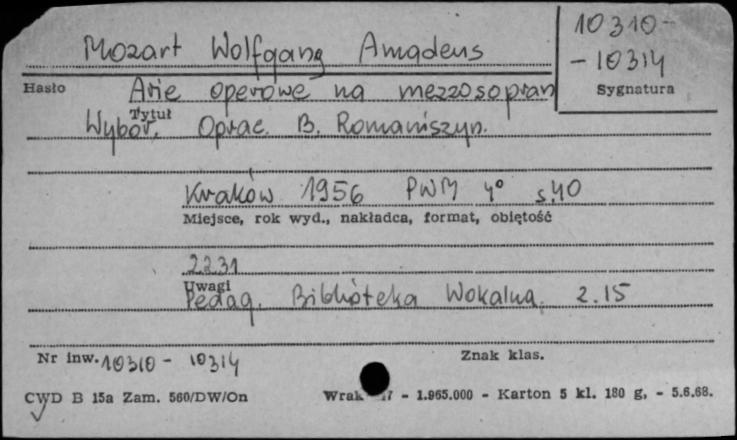 Mozart Wolfgang Amadeus
10310-
-10314
Hasło
Sygnatura
Arie operowe na mezzosopran
Tytuł
Wybór. Oprac. B. Romaniszyn.
Kraków 1956 PWM 4° s.40
Miejsce, rok wyd., nakładca, format, obiętość
2231
Uwagi
Pedag. Biblioteka Wokalna. 2.15
Nr inw. 10310 - 10314
Znak klas.
CWD B 15a Zam. 560/DW/On
Wrak 7 - 1.965.000 - Karton 5 kl. 180 g, - 5.6.68.